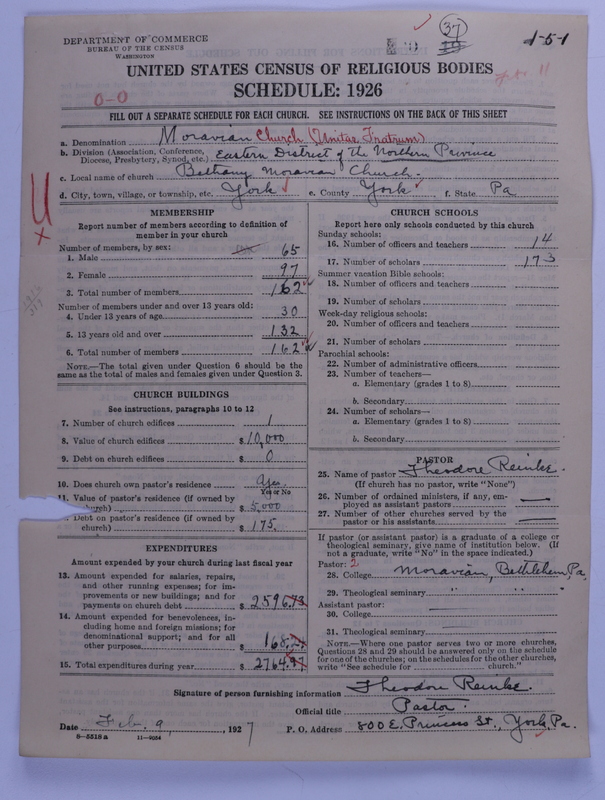 37
19
1-5-1
DEPARTMENT OF COMMERCE
BUREAU OF THE CENSUS
WASHINGTON
UNITED STATES CENSUS OF RELIGIOUS BODIES
SCHEDULE: 1926
0-0
FILL OUT A SEPARATE SCHEDULE FOR EACH CHURCH. SEE INSTRUCTIONS ON THE BACK OF THIS SHEET
a. Denomination Moravian Church (Unitas Fratrum)
b. Division (Association, Conference, Diocese, Presbytery, Synod, etc.) Eastern District of the Northern Province
c. Local name of church Bethany Moravian Church.
d. City, town, village, or township, etc. York e. County York f. State Pa
MEMBERSHIP
Report number of members according to definition of
member in your church
Number of members, by sex:
1. Male 65
2. Female 97
3. Total number of members 162
Number of members under and over 13 years old:
4. Under 13 years of age 30
5. 13 years old and over 132
6. Total number of members 162
NOTE.—The total given under Question 6 should be
same as the total of males and females given under Question 3.
CHURCH BUILDINGS
See instructions, paragraphs 10 to 12
7. Number of church edifices 1
8. Value of church edifices $10,000
9. Debt on church edifices $ 0
10. Does church own pastor's residence Yes
Yes or No
11. Value of pastor's residence (if owned by
church) $ 5,000
Debt on pastor's residence (if owned by
church) $ 175.
EXPENDITURES
Amount expended by your church during last fiscal year
13. Amount expended for salaries, repairs,
and other running expenses; for im-
provements or new buildings; and for
payments on church debt $ 2596.73
14. Amount expended for benevolences, in-
cluding home and foreign missions; for
denominational support; and for all
other purposes $ 168.
15. Total expenditures during year $ 2764.
CHURCH SCHOOLS
Report here only schools conducted by this church
Sunday schools:
16. Number of officers and teachers 14
17. Number of scholars 173
Summer vacation Bible schools:
18. Number of officers and teachers
19. Number of scholars
Week-day religious schools:
20. Number of officers and teachers
21. Number of scholars
Parochial schools:
22. Number of administrative officers
23. Number of teachers—
a. Elementary (grades 1 to 8)
b. Secondary
24. Number of scholars—
a. Elementary (grades 1 to 8)
b. Secondary
PASTOR
25. Name of pastor Theodore Reinke.
(If church has no pastor, write "None")
26. Number of ordained ministers, if any, em-
ployed as assistant pastors —
27. Number of other churches served by the
pastor or his assistants —
If pastor (or assistant pastor) is a graduate of a college or
theological seminary, give name of institution below. (If
not a graduate, write "No" in the space indicated.)
Pastor: 2
28. College Moravian, Bethlehem, Pa.
29. Theological seminary " " "
Assistant pastor:
30. College
31. Theological seminary
NOTE.—Where one pastor serves two or more churches,
Questions 28 and 29 should be answered only on the schedule
for one of the churches; on the schedules for the other churches,
write "See schedule for church."
Signature of person furnishing information Theodore Reinke.
Official title Pastor.
Date Feb. 9, 1927 P. O. Address 800 E. Princess St., York, Pa.
8-5518a 11-9084